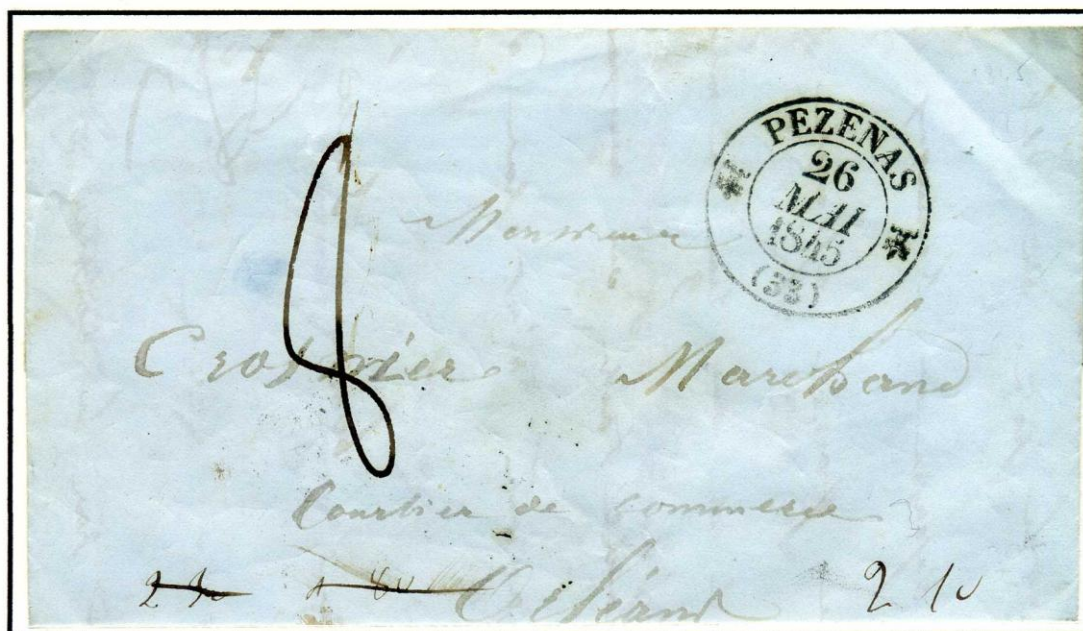 PEZENAS
26
MAI
1845
(33)
8
Monsieur
Crosnier Marchand
Courtier de commerce
2 10